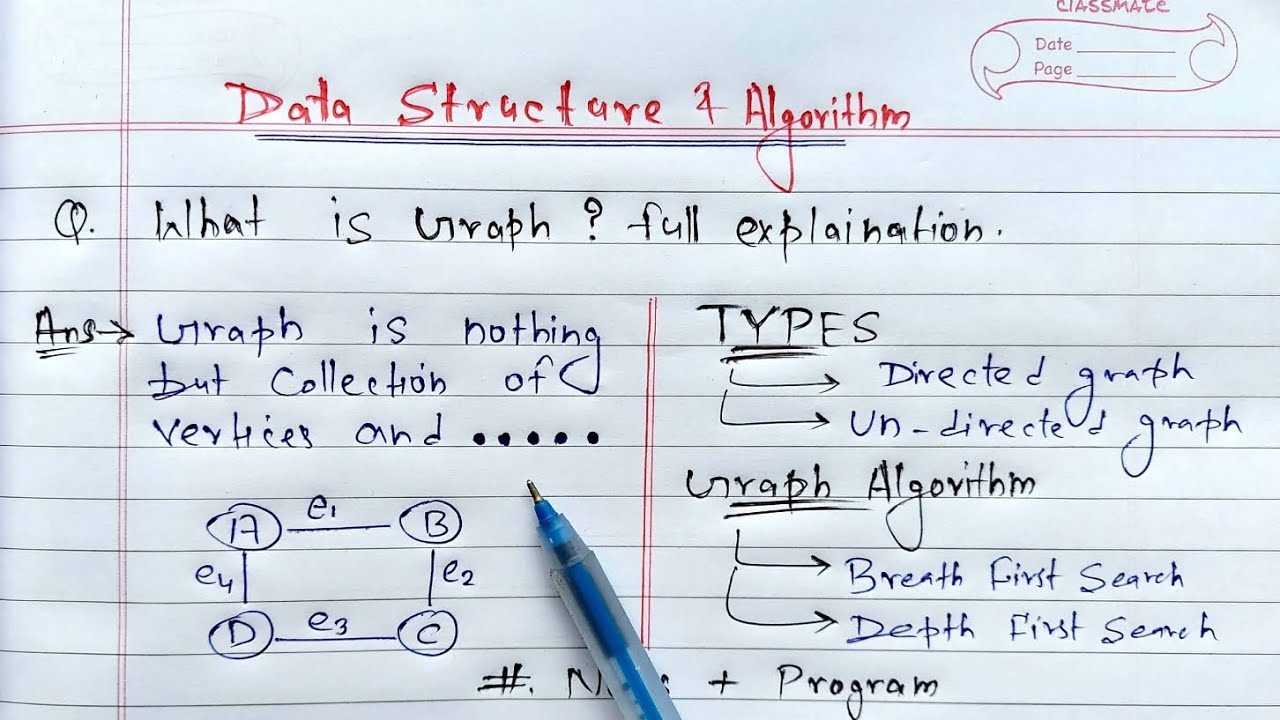 classmate
Date
Page
Data Structure & Algorithm
Q. What is Graph ? full explaination.
Ans→ Graph is nothing
but Collection of
vertices and •••••
A e1 B
e4 e2
D e3 C
TYPES
→ Directed graph
→ Un-directed graph
Graph Algorithm
→ Breath First Search
→ Depth First Search
#. + Program